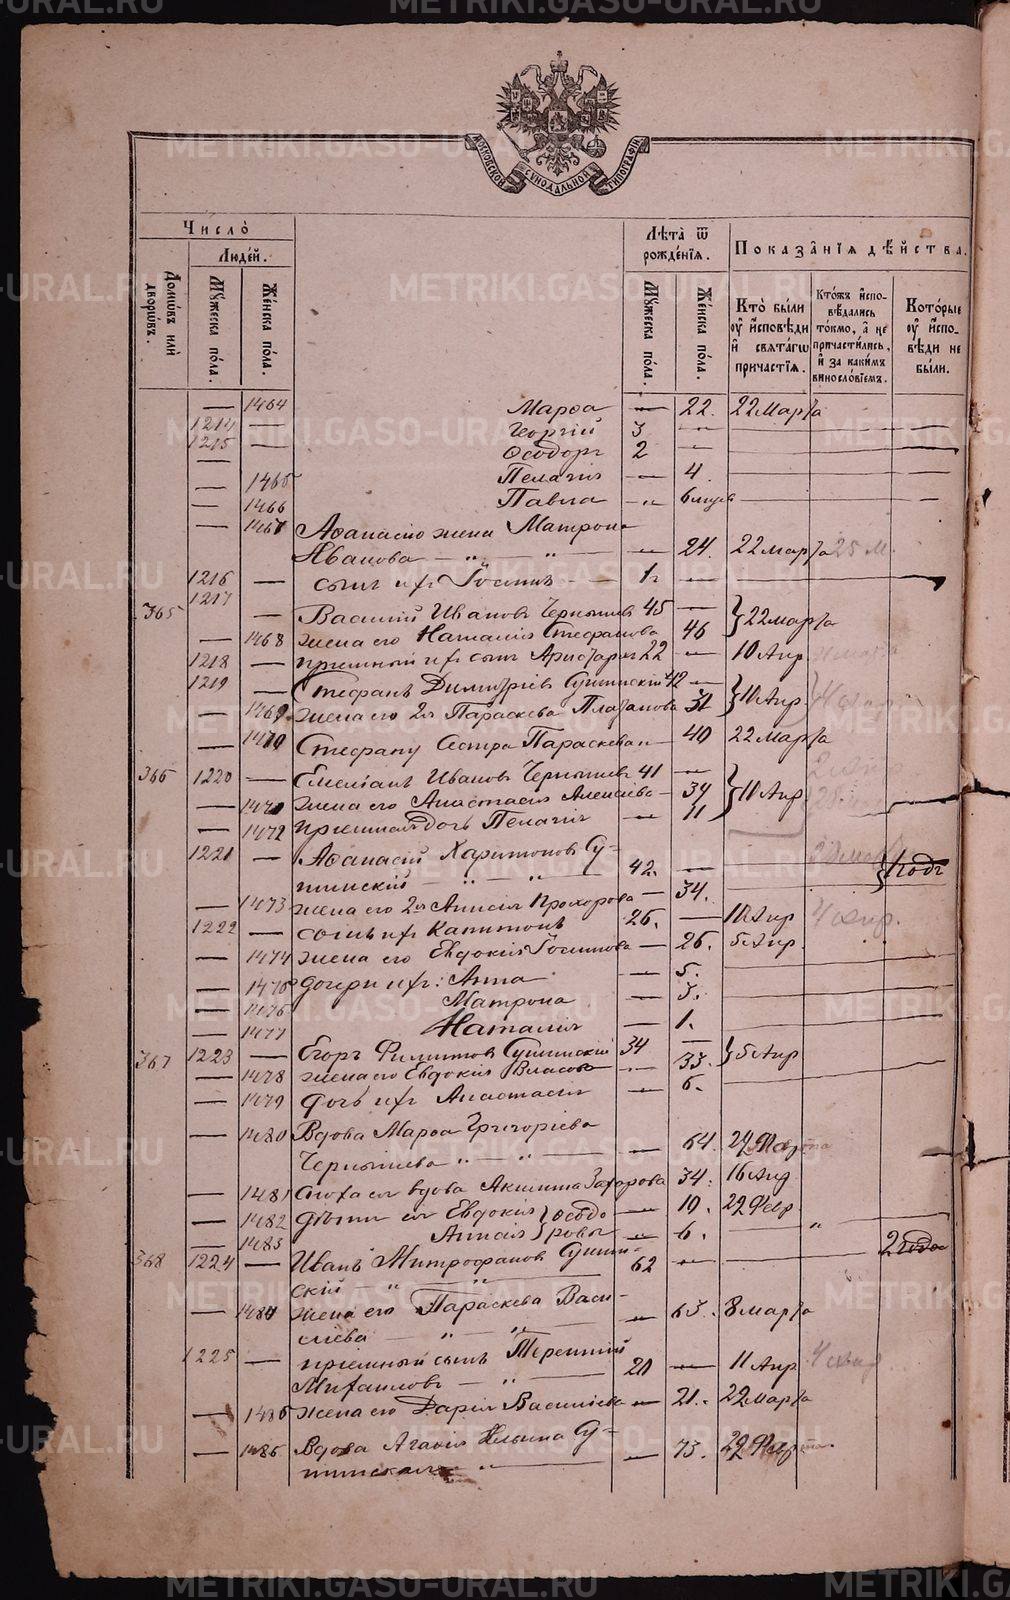 МОСКОВСКОЙ СѴНОДАЛЬНОЙ ТИПОГРАФІИ
Число̀
Людей.
Домѡвъ илѝ дворѡвъ.
Мꙋжеска по́ла.
Же́нска по́ла.
Лѣ́та ѿ рожде́нїя.
Мꙋжеска по́ла.
Же́нска по́ла.
Показа́нїя дѣ́йства.
Кто̀ бы́ли ᲂу҆ и҆сповѣди и҆ свята́гѡ причастїя.
Кто́жъ и҆сповѣдались то́кмо, а҆ не причастились, и҆ за какимъ винословїемъ.
Кото́рые ᲂу҆ и҆сповѣди не бы́ли.
— 1464 Марѳа — 22. 22 Марта
1214 — Георгій 3 —
1215 — Ѳеодоръ 2 —
— 1465 Пелагія — 4.
— 1466 Павла — 6 мцев
— 1467 Аѳанасію жена Матрона
Иванова — 24. 22 марта 25 м.
1216 — сынъ ихъ Іоаннъ 1 г —
365 1217 — Василій Ивановъ Чернышев 45 — } 22 марта
— 1468 жена его Наталія Стефанова 46
1218 — приемный их сынъ Аристархъ 22 — 10 Апр
1219 — Стефанъ Димитріев Сушинскій 42 — } 10 Апр
— 1469 жена его 2я Параскева Платонова 31
— 1470 Стефану Сестра Параскева — 40 22 Марта
366 1220 — Емеліанъ Иванов Чернышев 41 — } 10 Апр
— 1471 жена его Анастасія Алексіева — 34
— 1472 приемная дочь Пелагія — 11
1221 — Аѳанасій Харитонов Су-
шинскій — 42. — } 1 годъ
— 1473 жена его 2я Анисія Прохорова — 34.
1222 — сынъ их Капитонъ 26. — 10 Апр 4 Апр.
— 1474 жена его Евдокія Іоаннова — 26. 5 Апр.
— 1475 дочери ихъ: Анна — 5.
— 1476 Матрона — 3.
— 1477 Наталія — 1.
367 1223 — Егоръ Филиппов Сушинскій 34 — } 5 Апр
— 1478 жена его Евдокія Власова — 33.
— 1479 дочь ихъ Анастасія — 6.
— 1480 Вдова Марѳа Григоріева
Чернышева — 64. 29 Февр
— 1481 сноха ея вдова Акилина Захарова 34. 16 Апр
— 1482 дѣти ея Евдокія } Ѳеодо — 10. 29 Февр.
— 1483 Анисія } ровы — 6. "
368 1224 — Иванъ Митрофанов Сушин-
скій 62 — 2 года
— 1484 жена его Параскева Васи-
ліева — 63. 8 марта
1225 — приемный сынъ Терентій
Михаиловъ — 20 — 11 Апр
— 1485 жена его Дарія Василіева — 21. 22 марта
— 1486 Вдова Агафія Ильина Су-
шинская — 73. 29 Февр
METRIKI.GASO-URAL.RU